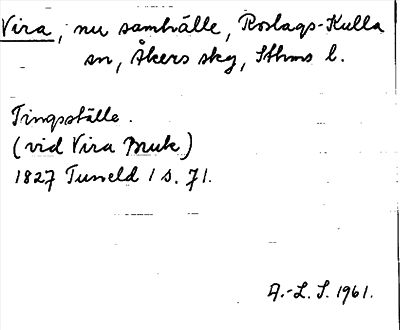 Vira, nu samhälle, Roslags-Kulla
sn, Åkers skg, Sthms l.
Tingsställe.
(vid Vira Bruk)
1827 Tuneld 1 s. 71.
A.-L. S. 1961.